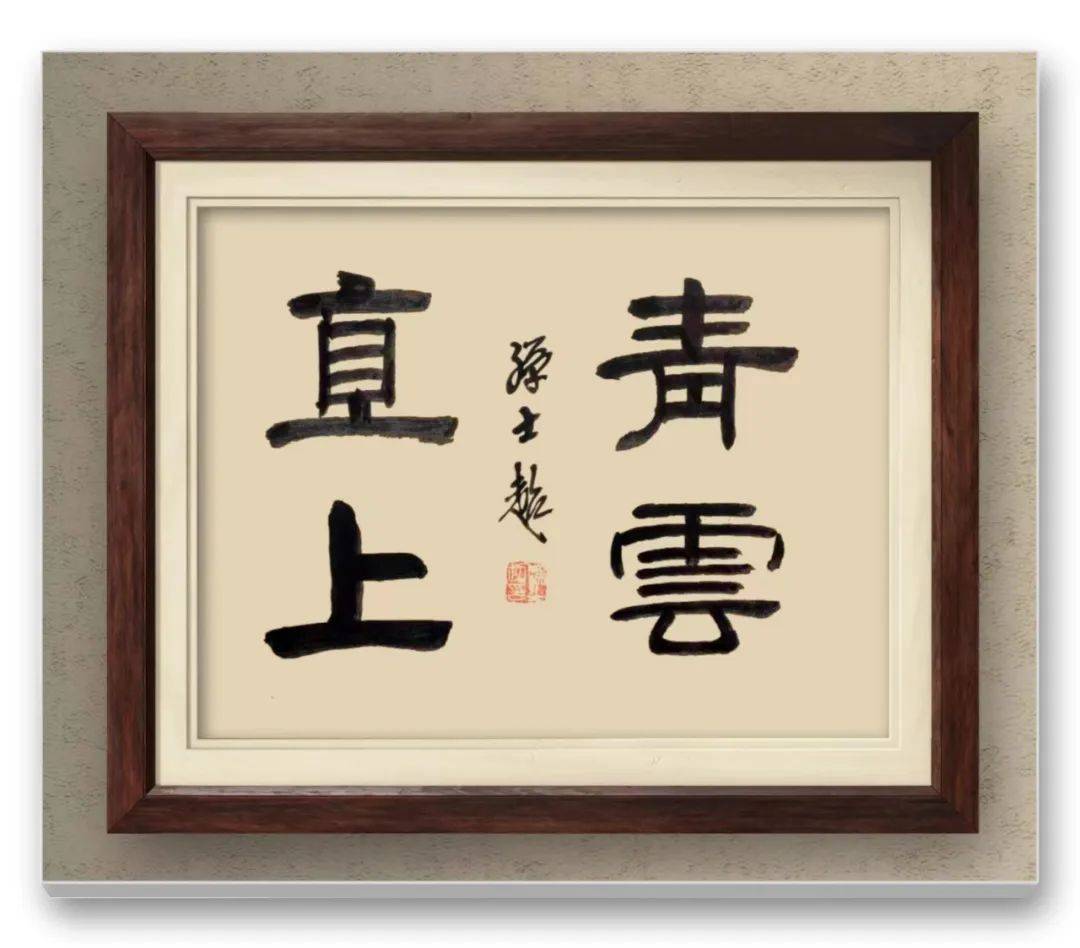 青雲
直上
孫士超